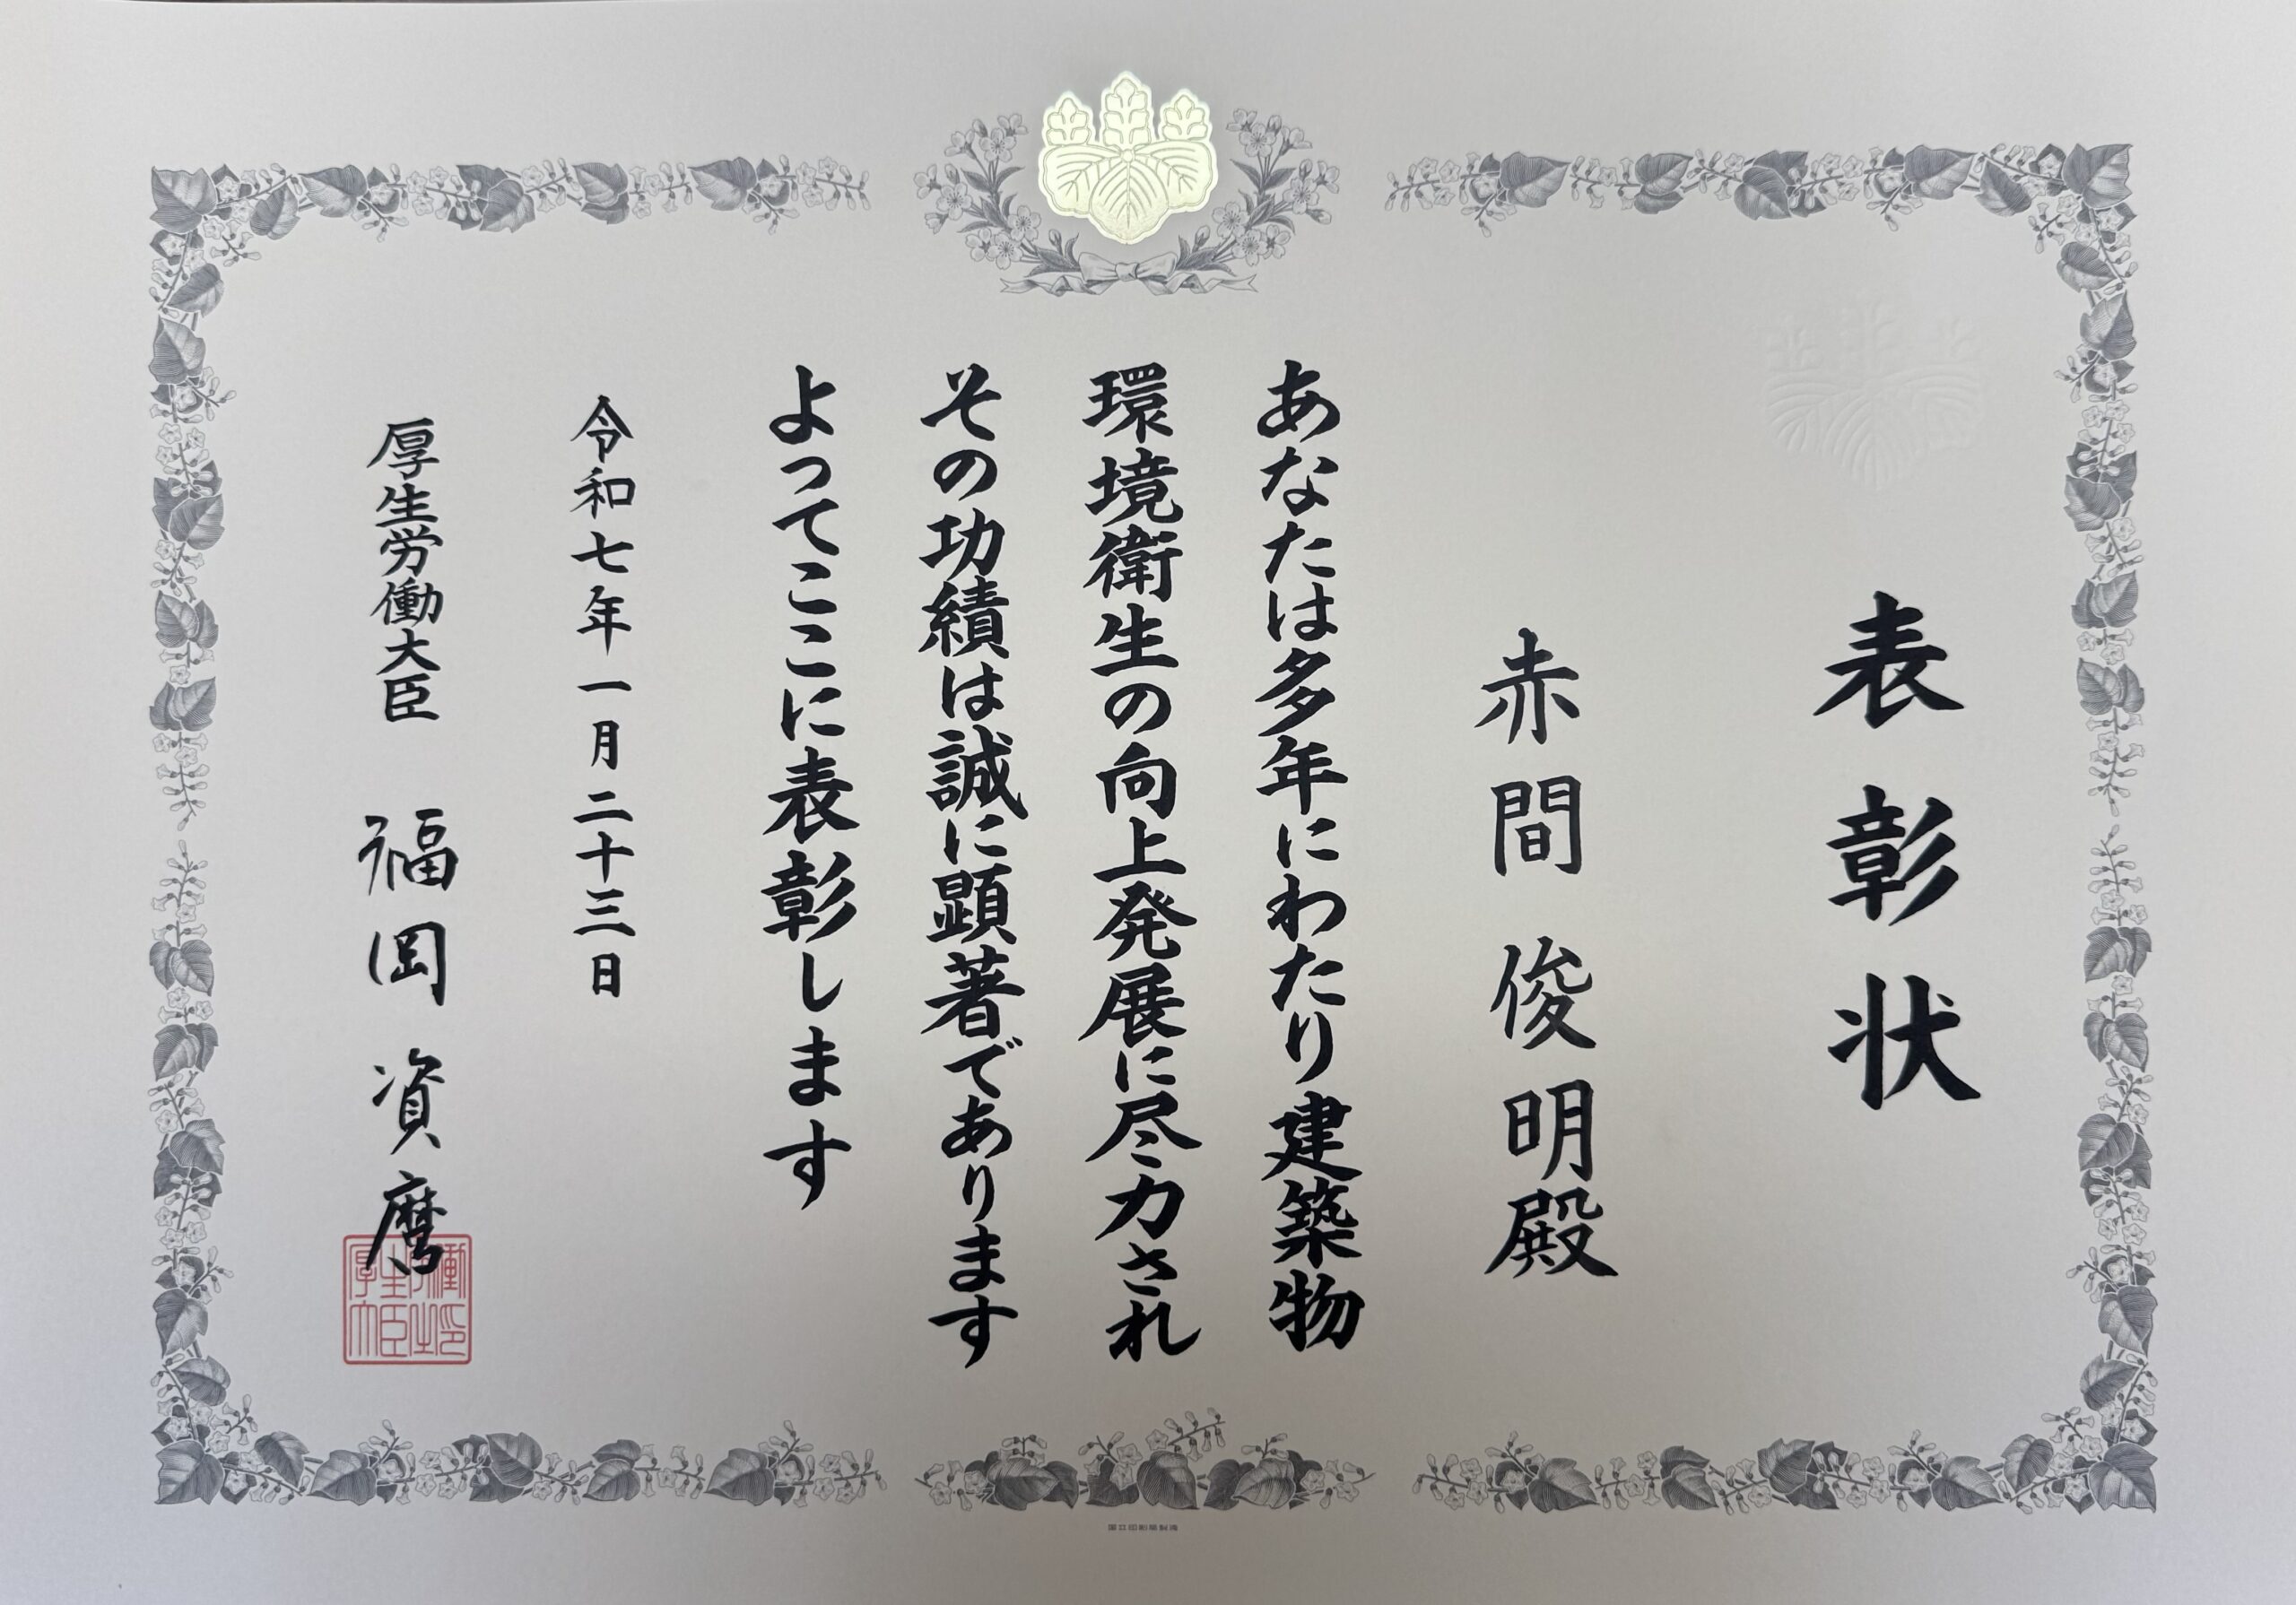 表彰状
赤間俊明殿
あなたは多年にわたり建築物
環境衛生の向上発展に尽力され
その功績は誠に顕著であります
よってここに表彰します
令和七年一月二十三日
厚生労働大臣 福岡資麿
国立印刷局製造